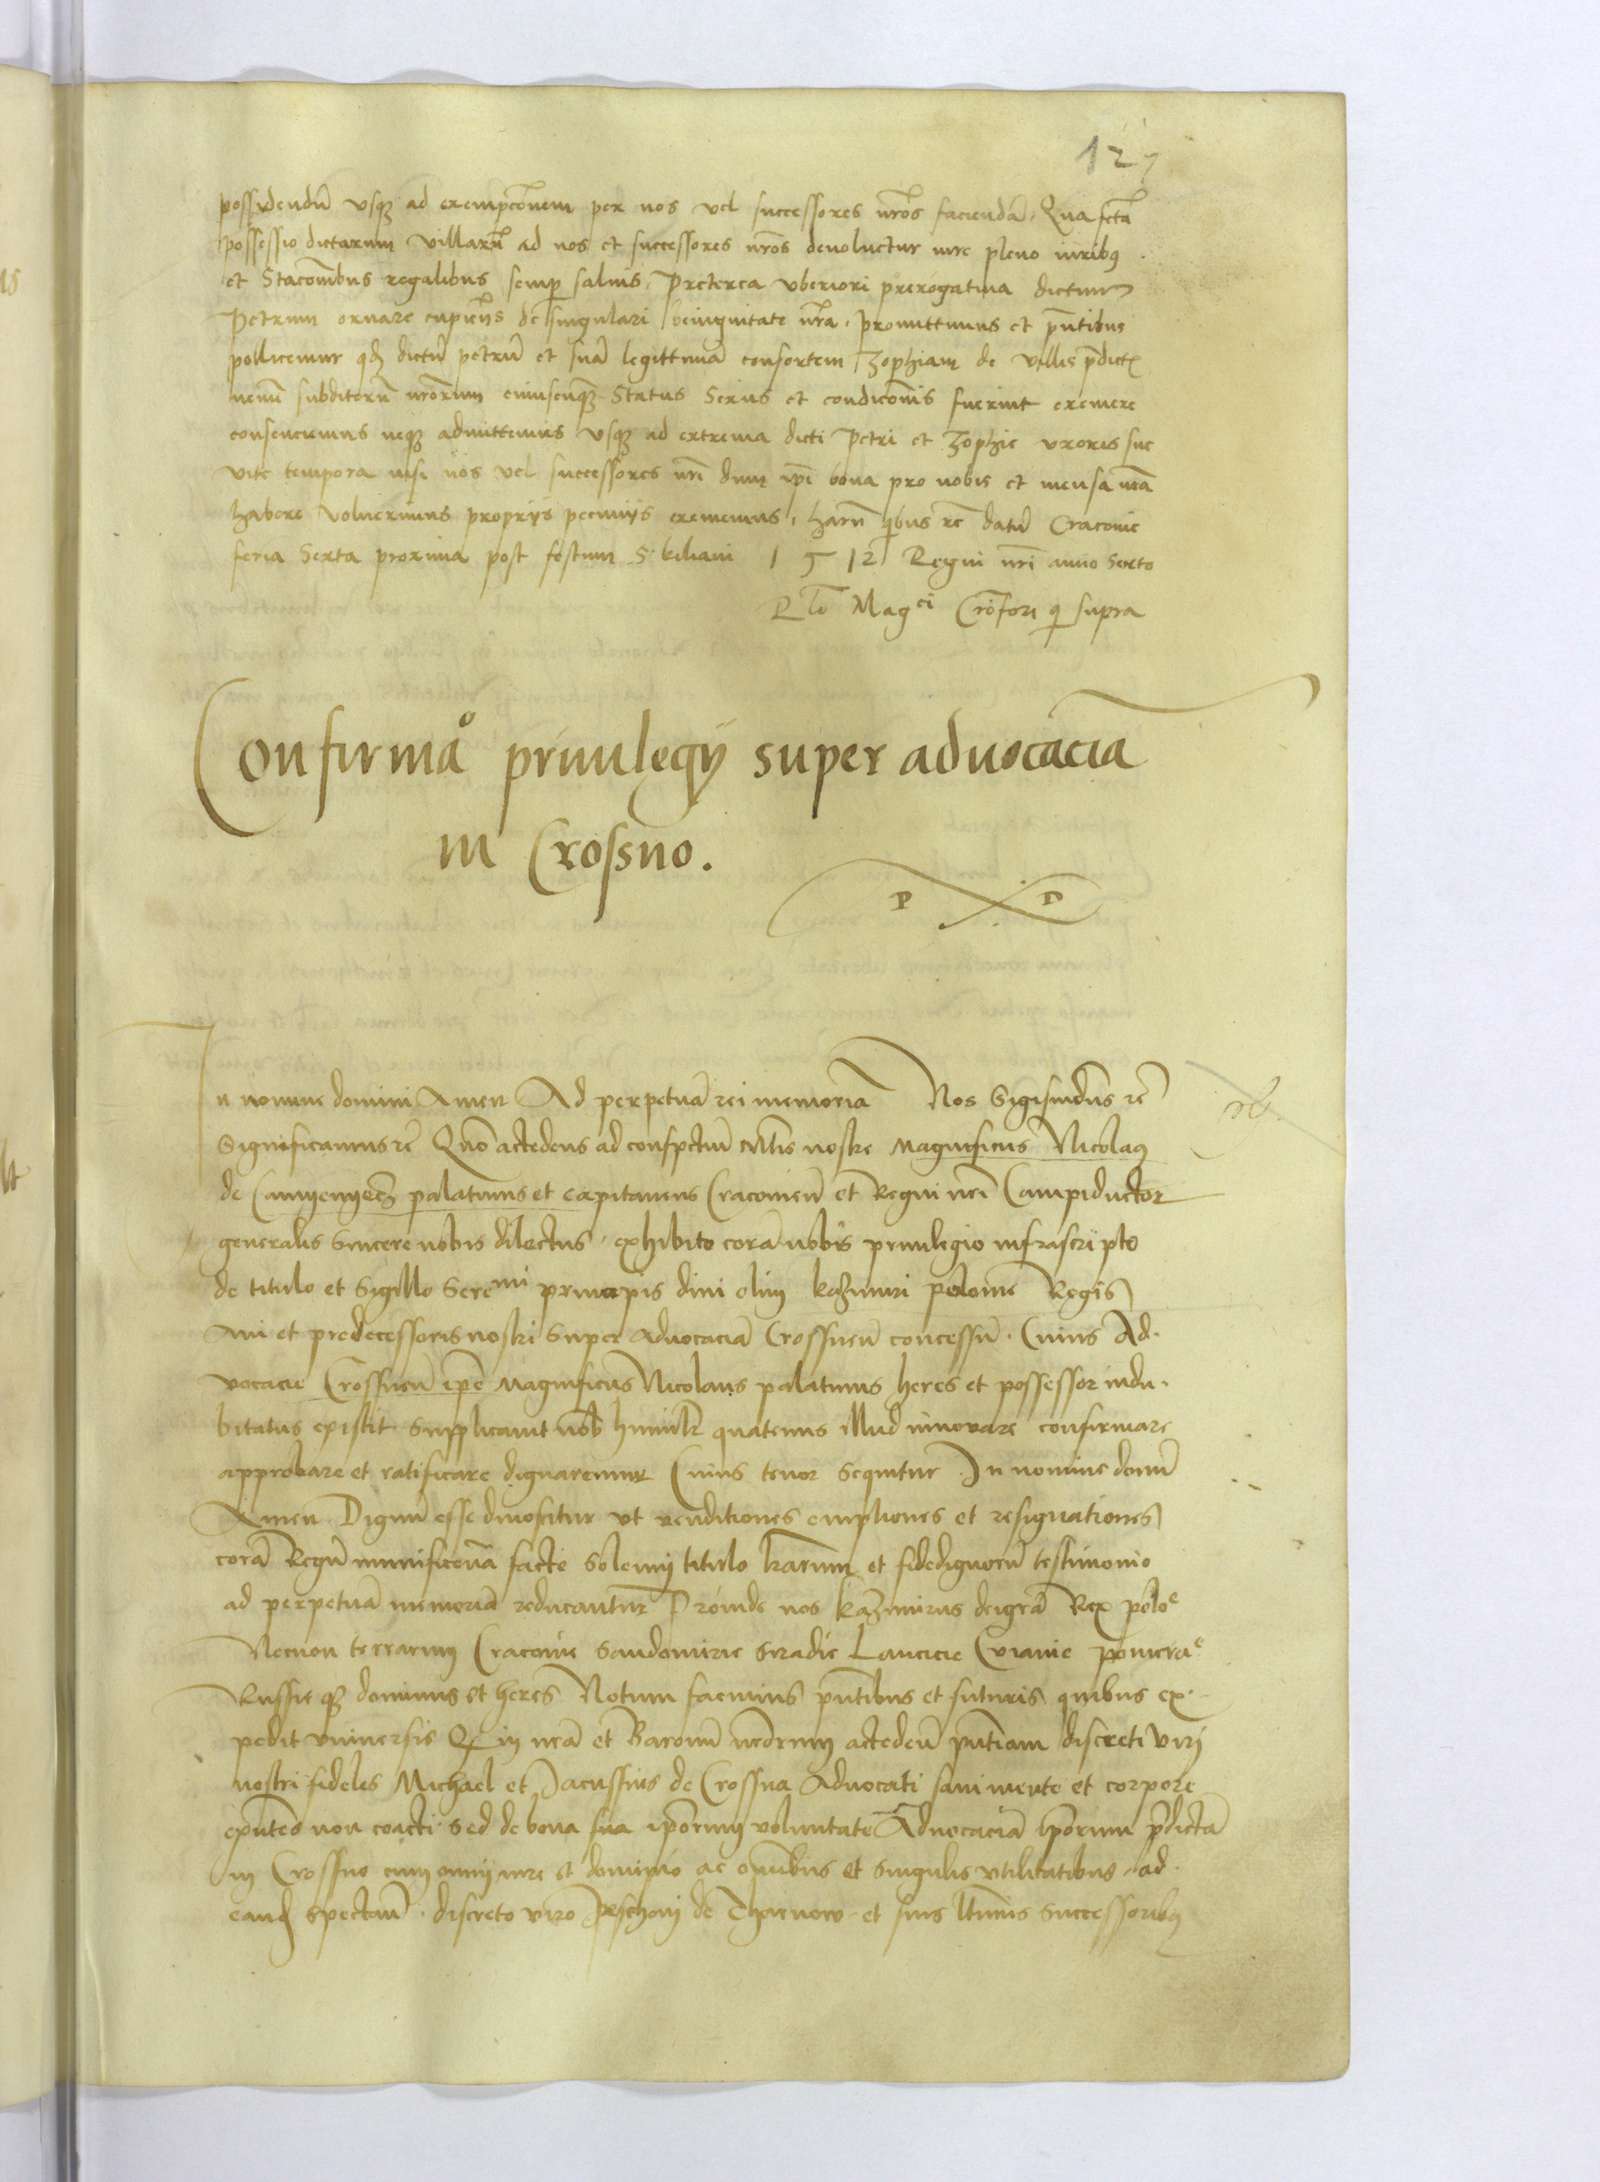 127
possidendũ vsq₃ ad exempcõnem per nos vel successores nrõs faciendã, Qua fcta
possessio dictarum villarũ ad nos et successores nrõs deuoluetur iure pleno iuribus
et Stacõnibus regalibus semp saluis, Preterea vberiori prerogatiua dictum
Petrum ornare cupientes de singulari benignitate nra, promittimus et pntibus
pollicemur qd dictũ petrũ et suã legittimã consortem Zophiam de villis pdictis
nemini subditorũ nrõrum cuiuscunq₃ Status Sexus et condicõnis fuerint exemere
consenciemus neq₃ admittemus vsq₃ ad extrema dicti Petri et Zophie vxoris sue
vite tempora nisi nos vel successores nri dum ipa bona pro nobis et mensa nra
habere voluerimus proprijs pecunijs exememus, harũ qbus rc datũ Cracouie
feria Sexta proxima post festum S. kiliani 1512 Regni nri anno Sexto
R lo Magci Cristofori q supra
Confirmao priuilegij super aduocacia
in Crossno.
P P
In nomine domini Amen Ad perpetuã rei memoriã Nos Sigismudus rc
Significamus rc Quo accedens ad conspctum Mtis nostre Magnificus Nicolaus
de Camyenyecz palatinus et capitaneus Cracouien et Regni nri Campiductor
generalis Sincere nobis dilectus, exhibito corã nobis priuilegio infrascripto
de titulo et Sigillo Sereni principis diui olim kazimiri polonie Regis
Aui et predecessoris nostri Super aduocaciã Crossnen concessũ. Cuius Ad-
uocacie Crossnen ipe Magnificus Nicolaus palatinus heres et possessor indu-
bitatus existit Supplicauit nob humilr quatenus illud innouare confirmare
approbare et ratificare dignaremur Cuius tenor Sequitur. In nomine domi
Amen Dignũ esse dinoscitur vt venditiones emptiones et resignationes
corã Regũ munificentia facte Solenni titulo lrarum et fidedignorũ testimonio
ad perpetuã memoriã reducantur Proinde nos kazimirus dei gra Rex poloe
Necnon terrarum Cracouie Sandomirie Siradie Lancicie Cuiauie pomerae
Russie q₃ dominus et heres Notum facimus pntibus et futuris quibus ex-
pedit vniuersis Q in nrã et Baronũ nrõrum accedeñ pntiam discreti viri
nostri fideles Michael et Jacussius de Crossna Aduocati sani mente et corpore
exntes non coacti sed de bona sua iporum voluntate Aduocaciã iporum pdictã
in Crossno cum omni iure et dominio ac omibus et singulis vtilitatibus ad
eand spectan. discreto viro Peschoni de Tharnow et suis ltimis Successoribus